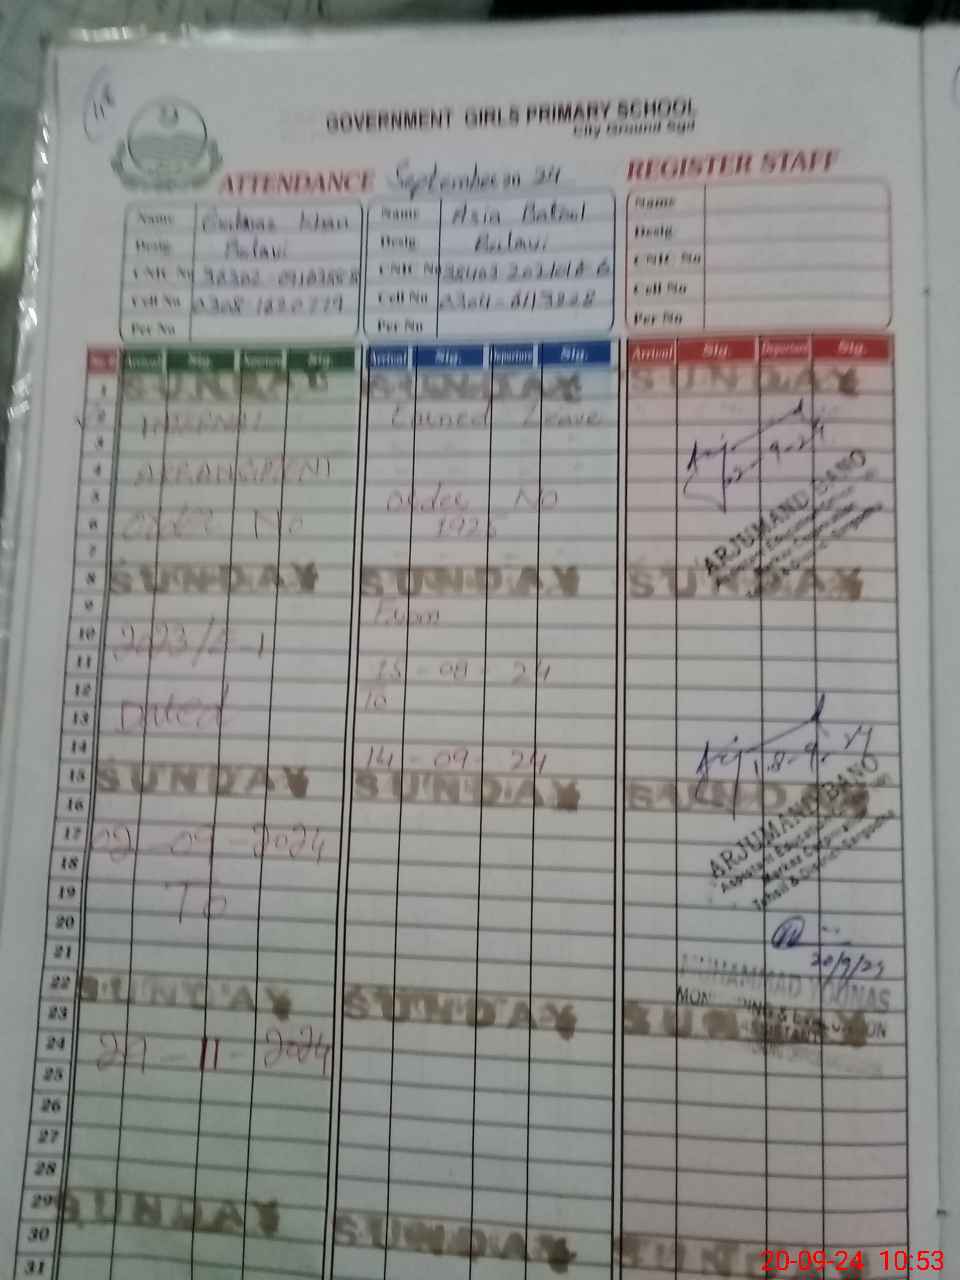 118
GOVERNMENT GIRLS PRIMARY SCHOOL
City Ground Sgd
ATTENDANCE September 20 24 REGISTER STAFF
Name Khan Name Asia Batool Name
Desig Desig Desig
CNIC No CNIC No CNIC No
Cell No Cell No Cell No
Per No Per No Per No
Arrival Sig. Departure Sig. Arrival Sig. Departure Sig. Arrival Sig. Departure Sig.
1 SUNDAY SUNDAY SUNDAY
2 INTERNAL Earned Leave
3
4 ARRANGMENT
5 order No
6 order No 1925
7
8 SUNDAY SUNDAY SUNDAY
9 From
10 2023/E-1
11 15 - 08 - 24
12 To
13 Dated
14 14 - 09 - 24
15 SUNDAY SUNDAY SUNDAY
16
17 02 - 09 - 2024
18
19 To
20
21
22 SUNDAY SUNDAY SUNDAY
23
24 29 - 11 - 2024
25
26
27
28
29 SUNDAY SUNDAY SUND
30
31
02-9-24
ARJUMAND BANO
18-9-24
ARJUMAND BANO
Assistant Education
Markaz
Tehsil & District Sargodha
20/9/24
MUHAMMAD YOUNAS
20-09-24 10:53